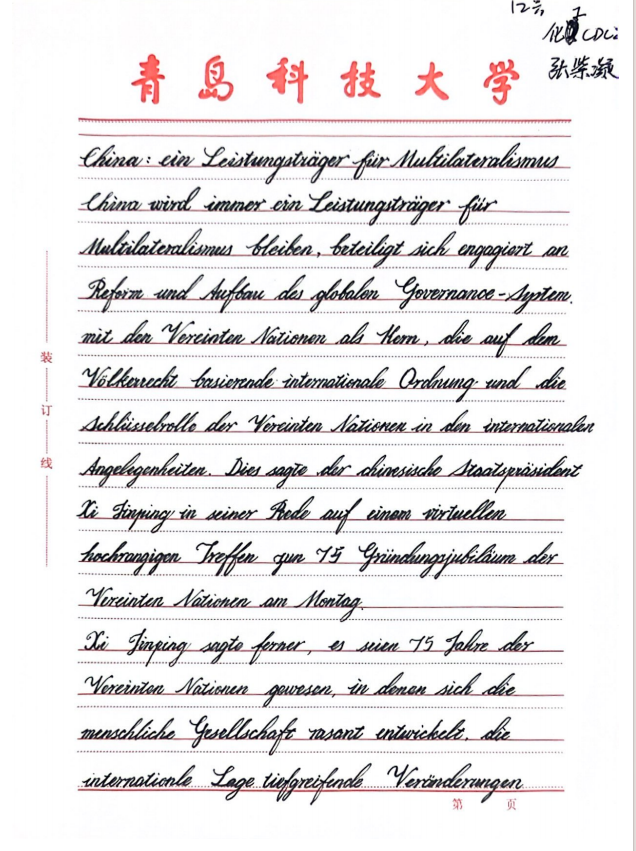 12
张紫凝
青岛科技大学
China: ein Leistungsträger für Multilateralismus
China wird immer ein Leistungsträger für
Multilateralismus bleiben, beteiligt sich engagiert an
Reform und Aufbau des globalen Governance-System,
mit den Vereinten Nationen als Kern, die auf dem
Völkerrecht basierende internationale Ordnung und die
Schlüsselrolle der Vereinten Nationen in den internationalen
Angelegenheiten. Dies sagte der chinesische Staatspräsident
Xi Jinping in seiner Rede auf einem virtuellen
hochrangigen Treffen zun 75 Gründungsjubiläum der
Vereinten Nationen am Montag.
Xi Jinping sagte ferner, es seien 75 Jahre der
Vereinten Nationen gewesen, in denen sich die
menschliche Gesellschaft rasant entwickelt, die
internationle Lage tiefgreifende Veränderungen
装
订
线
第 页